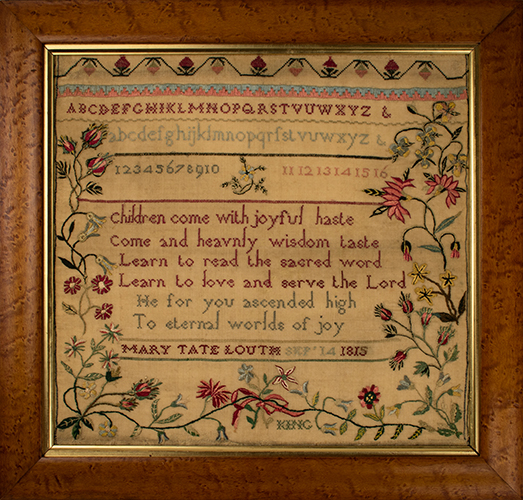 ABCDEFGHIKLMNOPQRSTVUWXYZ &
abcdefghijklmnopqrſstvuwxyz &
12345678910 11 12 13 14 15 16
Children come with joyful haste
Come and heavnly wisdom taste
Learn to read the sacred word
Learn to love and serve the Lord
He for you ascended high
To eternal worlds of joy
MARY TATE LOUTH SEPr 14 1815
KING